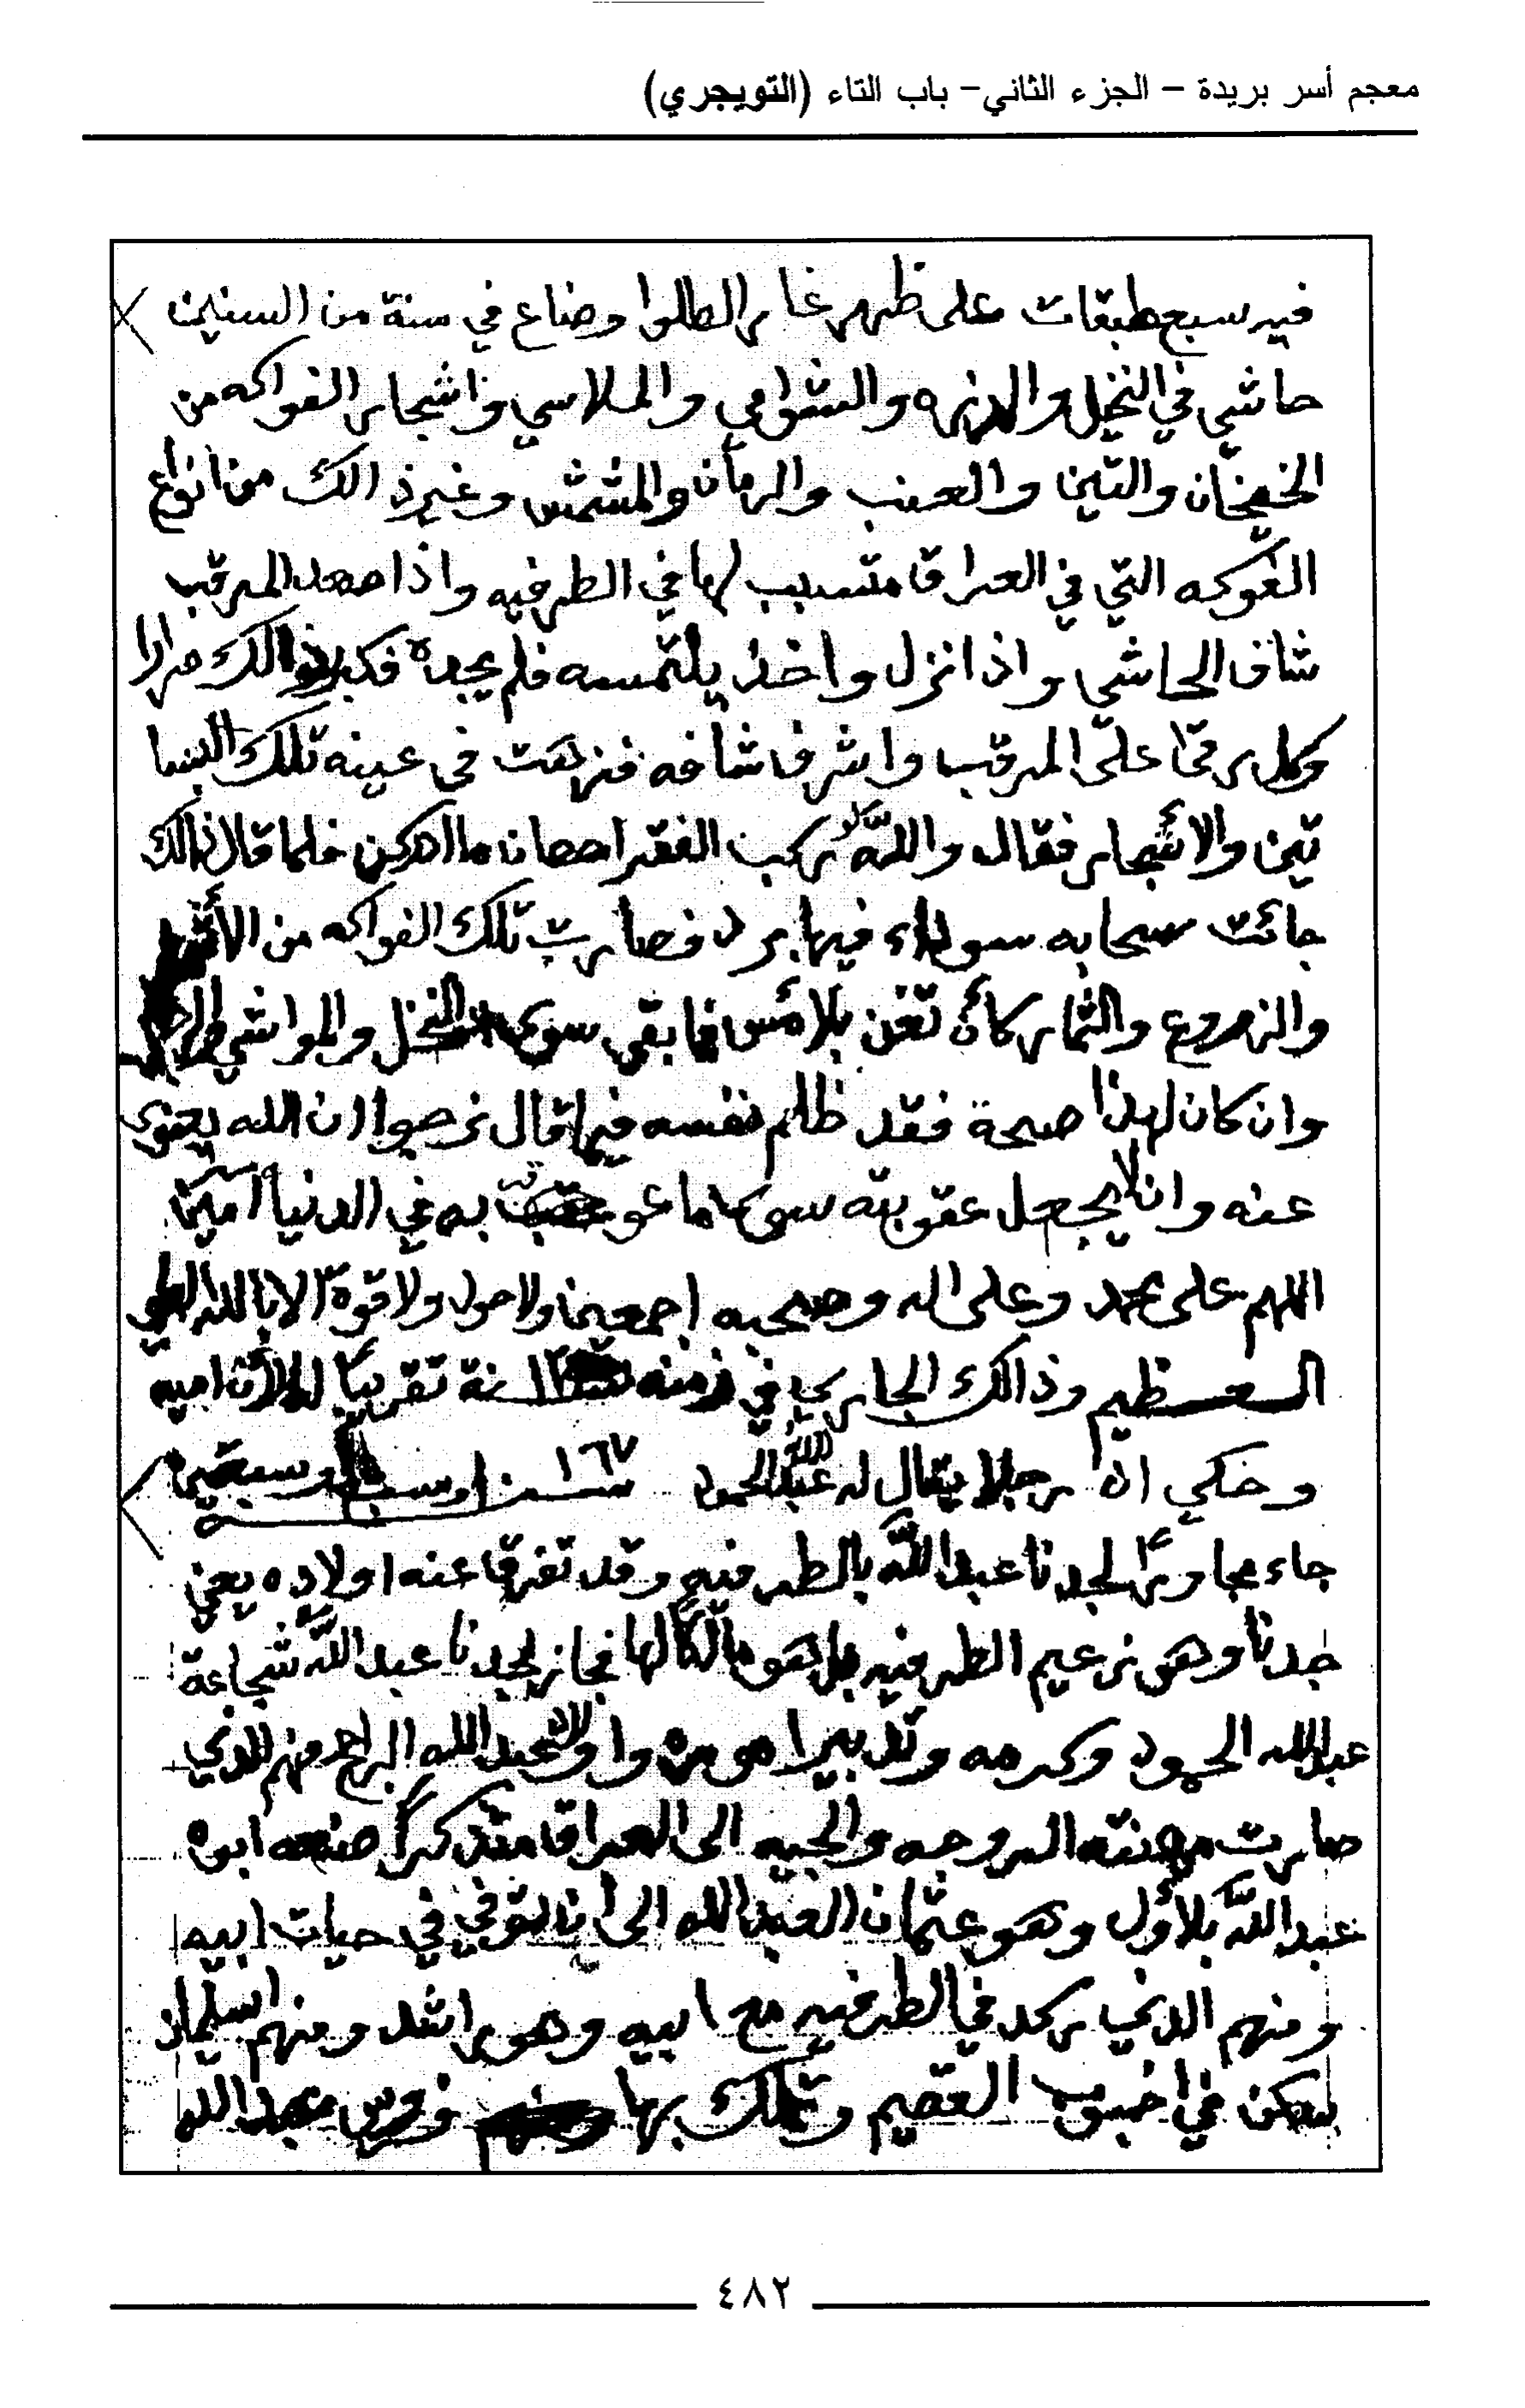 معجم أسر بريدة – الجزء الثاني – باب التاء (التويجري)
فيه سبع طبقات على ظهر غار الطلوا وضاع في سنة من السنين
حاشي في النخيل والذره والشوامي والملاسي واشجار الفواكه من
الخيخان والتين والعنب والرمان والمشمش وغير ذالك من انواع
الفوكه التي في العراق متسبب لها في الطرفيه واذا صعد المرقب
شاف الحاشي واذا نزل واخذ يلتمسه فلم يجده فكرر ذالك مرارا
وكل يرقى على المرقب واشرف شافه فزهت في عينه تلك البسا
تين والاشجار فقال والله لا يركب الفقر احصانه ما ادركن فلما قال ذالك
جائت سحابه سوداء فيها برد فصارت تلك الفواكه من الأشجار
والزروع والثمار كأن تغن بلامس فما بقي سوى النخل والمواشي
وان كان لهذا صحة فقد ظلم نفسه فيما قال نرجوا ان الله يعفوى
عنه وان لا يجعل عقوبته سوى ما عوقب به في الدنيا آمين
اللهم على محمد وعلى اله وصحبه اجمعين ولا حول ولا قوة الا بالله العلي
العظيم وذالك الجاري في زمنه سنة تقريبًا
وحكي ان رجلا يقال له عبدالله الحمود ١٦٧
جاء مجاورًا لجدنا عبدالله بالطرفيه وقد تفرقا عنه اولاده يعني
جدنا وهو زعيم الطرفيه بل هو مالكًا لها فجاز لجدنا عبدالله شجاعة
عبدالله الحمود وكرمه وتدبير اموره واولاد عبدالله البراحم منهم الذي
صارت مهنته السروجه والجيه الى العراق متذكرًا صنعه ابوه
عبدالله بلأول وهو عثمان العبدالله الى أن توفي في حيات ابيه
ومنهم الذي ركد في الطرفيه مع ابيه وهو راشد ومنهم سليمان
سكن في خبوب القصيم وتملك بها وغرس عبدالله
٤٨٢